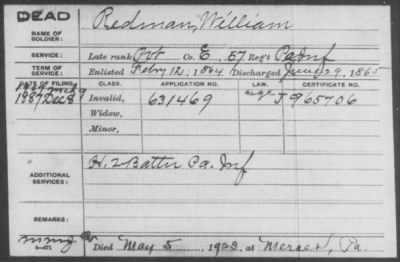 DEAD
NAME OF SOLDIER: Redman, William
SERVICE: Late rank Pvt Co. E, 57 Reg't Pa Inf
TERM OF SERVICE: Enlisted Febry 12, 1864 Discharged June 29, 1865
DATE OF FILING. CLASS. APPLICATION NO. LAW. CERTIFICATE NO.
1887 Dec 8 Invalid, 631469 age J 965706
Widow,
Minor,
ADDITIONAL SERVICES: H. 2 Battn Pa. Inf
REMARKS:
Died May 5, 1923, at Mercer, Pa.